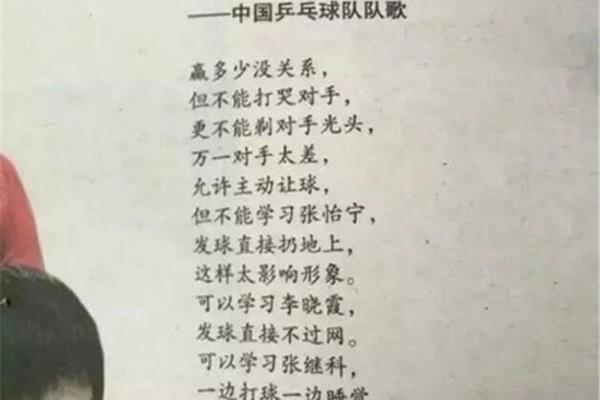 ——中国乒乓球队队歌
赢多少没关系，
但不能打哭对手，
更不能剃对手光头，
万一对手太差，
允许主动让球，
但不能学习张怡宁，
发球直接扔地上，
这样太影响形象。
可以学习李晓霞，
发球直接不过网。
可以学习张继科，
一边打球一边睡觉